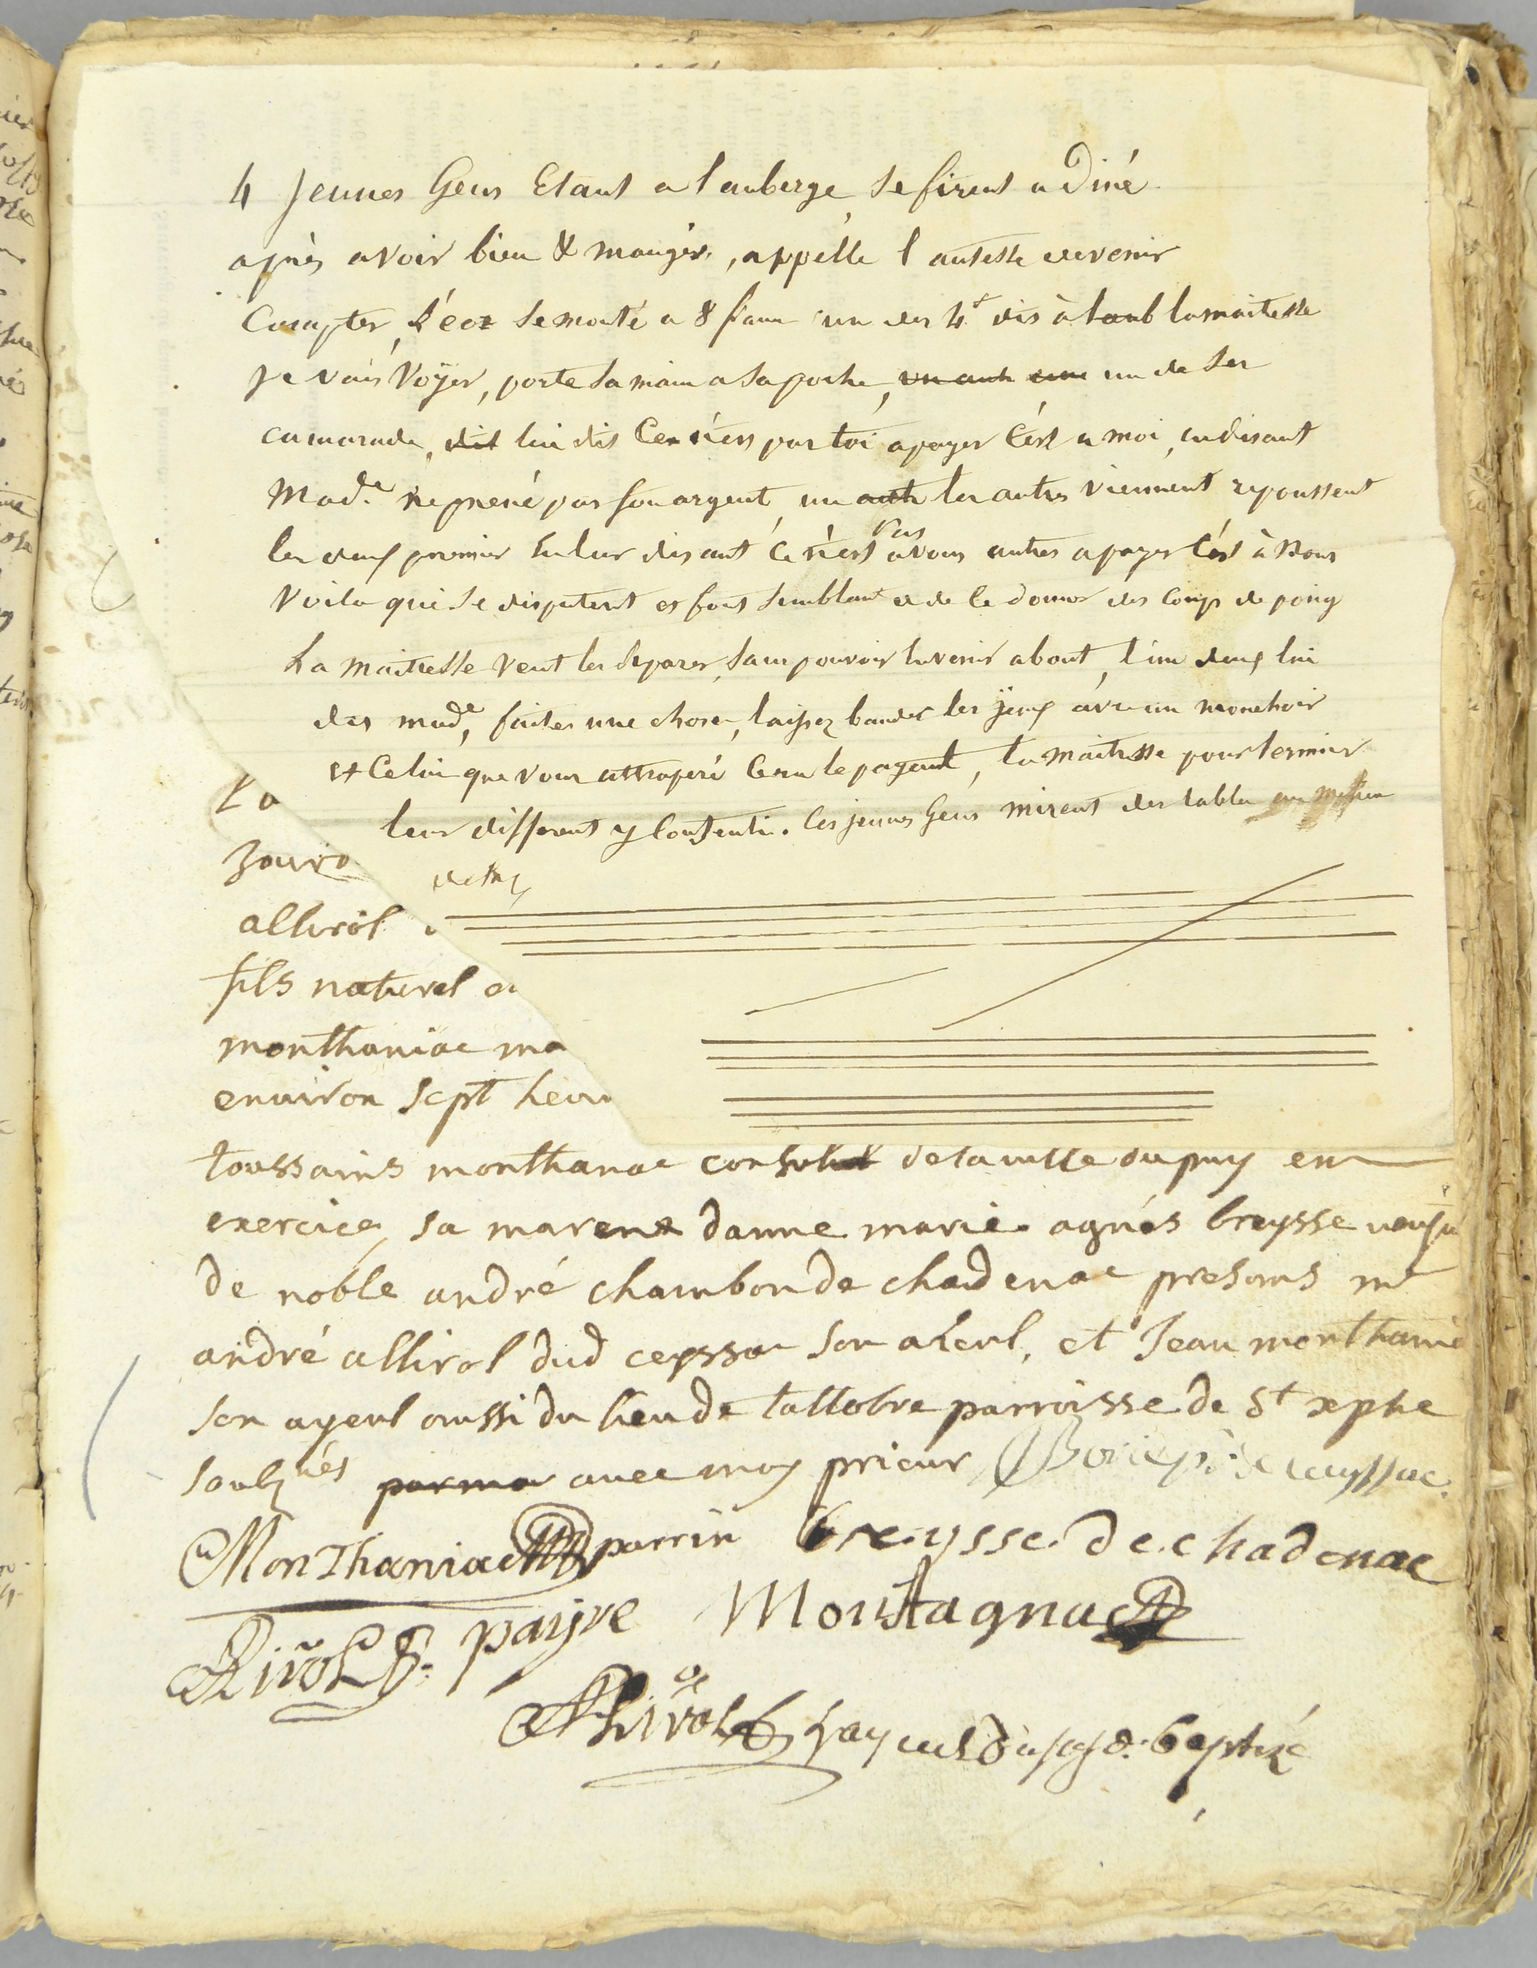 4 jeunes Gens Etant a l auberge, se firent a Diné
après avoir bien & mangér, appélle l autesse de venir
Compter, L'éco se monté a 8 franc un des 4 dis à laub la maitesse
je vais Voÿer, porte sa main a sa poche, un autr un de ses
camarade, dit lui dis Ce n'ess pas toi a payer C'ést a moi, en disant
Mad.e ne prené pas son argent, un autr les autres viennent repoussent
les deux premier En leur disant Ce n'est pas a vous autres a payer C'ést à Nous
Voila qui se disputent es font semblant de ce donner des Coups de poing
La maitresse veut les séparer, sans pouvoir en venir a bout, l'un deux lui
des mad.e, faites une chose, laissez bander les yeux avec un mouchoir
et Celui que vous attraperé Cera le payant, la maitresse pour terminer
leur different y Consenti. Ces jeunes Gens mirent des tables
La
allirol
fils naturel
monthaniac ma
environ sept heur
toussains monthanac consul de la ville du puy en
exercice, sa marene damme marie agnés breysse
de noble andré chambon de chadenac presents mr
andré allirol dud ceyssac son aieul, et Jean monthania
son ayeul aussi du lieu de parroisse de St
soubznés par mo avec moy prieur
Monthaniac parrin breysse de chadenac
payre Montagnac
Allirol layeul baptizé